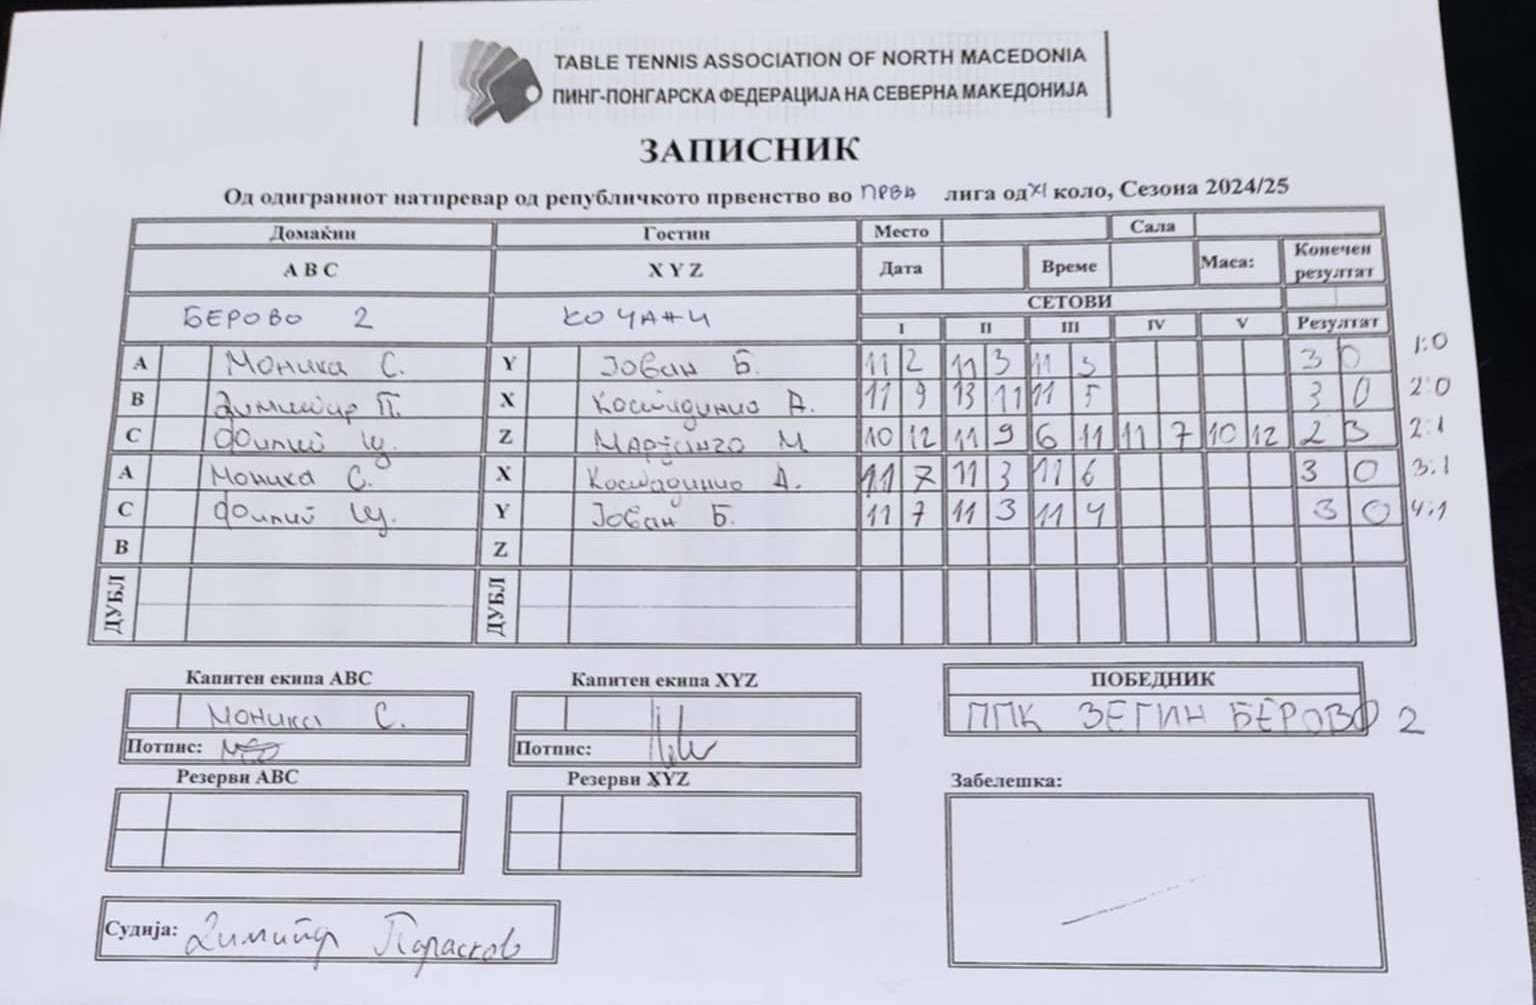 TABLE TENNIS ASSOCIATION OF NORTH MACEDONIA
ПИНГ-ПОНГАРСКА ФЕДЕРАЦИЈА НА СЕВЕРНА МАКЕДОНИЈА
ЗАПИСНИК
Од одиграниот натпревар од републичкото првенство во ПРВА лига од XI коло, Сезона 2024/25
Домаќин Гостин Место Сала
A B C X Y Z Дата Време Маса: Конечен резултат
БЕРОВО 2 КОЧАНИ СЕТОВИ
I II III IV V Резултат
A Моника С. Y Јован Б. 11 2 11 3 11 3 0 1:0
B Димитар П. X Костадинио А. 11 9 13 11 11 5 3 0 2:0
C Филип Z М. 10 12 11 9 6 11 11 7 10 12 2 3 2:1
A Моника С. X Костадинио А. 11 7 11 3 11 6 3 0 3:1
C Филип Y Јован Б. 11 7 11 3 11 4 3 0 4:1
B Z
ДУБЛ ДУБЛ
Капитен екипа ABC Капитен екипа XYZ ПОБЕДНИК
Моника С. ППК ЗЕГИН БЕРОВО 2
Потпис: Потпис:
Резерви ABC Резерви XYZ Забелешка:
Судија: Димитар Парасков